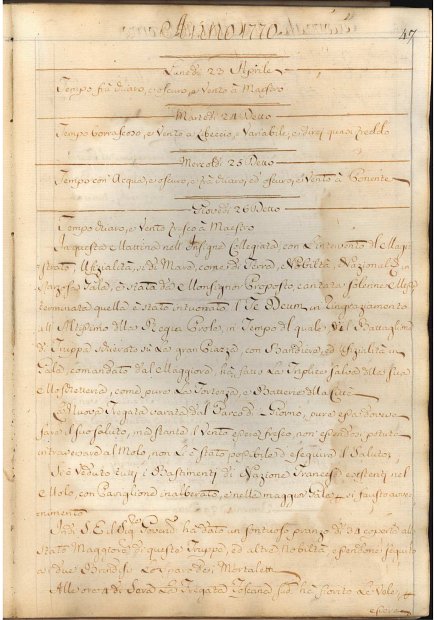 Anno 1770
47
Lunedì 23 Aprile
Tempo frà chiaro, e oscuro, e Vento à Maestro
Martedì 24 Detto
Tempo borrascoso, e Vento à Libeccio, e Variabile, e direi quasi freddo
Mercoldì 25 Detto
Tempo con Acqua, e oscuro, e frà chiaro, ed oscuro, e Vento à Ponente
Giovedì 26 Detto
Tempo chiaro, e Vento fresco à Maestro
In questa Mattina nell' Insigne Collegiata, con l'intervento del Magi-
strato, Ufizialità, e di Mare, come di Terra, Nobiltà, Nazionale in
Gala, è stata da Monsignor Proposto cantata solenne Messa
terminata quella è stato intuonato il Te Deum in ringraziamento
all' Altissimo della Regia Prole, in Tempo del quale il Battaglione
di Truppa schierato sù la gran Piazza, con Bandiere, ed Ufizialità in
Gala, comandato dal Maggiore, hà fatto la Triplice salva della sua
Moschetteria, come pure la Fortezza, e Batterie della Città
La Nuova Fregata varata dal Parco di Giorno, pure
fare il suo saluto, mà stante il Vento fresco, non essendosi potuta
intraversare al Molo, non l'è stato possibile d'eseguire il Saluto
Si è veduto tutti i Bastimenti di Nazione Francese esistenti nel
Molo, con Paviglione inalberato, e nella maggior Gala
venimento
Indi S. E. il Sig.r Govern.re hà dato un sontuoso pranzo di coperti allo
Stato Maggiore di questa Truppa, ed altra Nobiltà, essendone seguito
a due Brindisi lo sparo dei Mortaletti
Alle ore di Sera la Fregata Toscana hà sciolto le Vele,